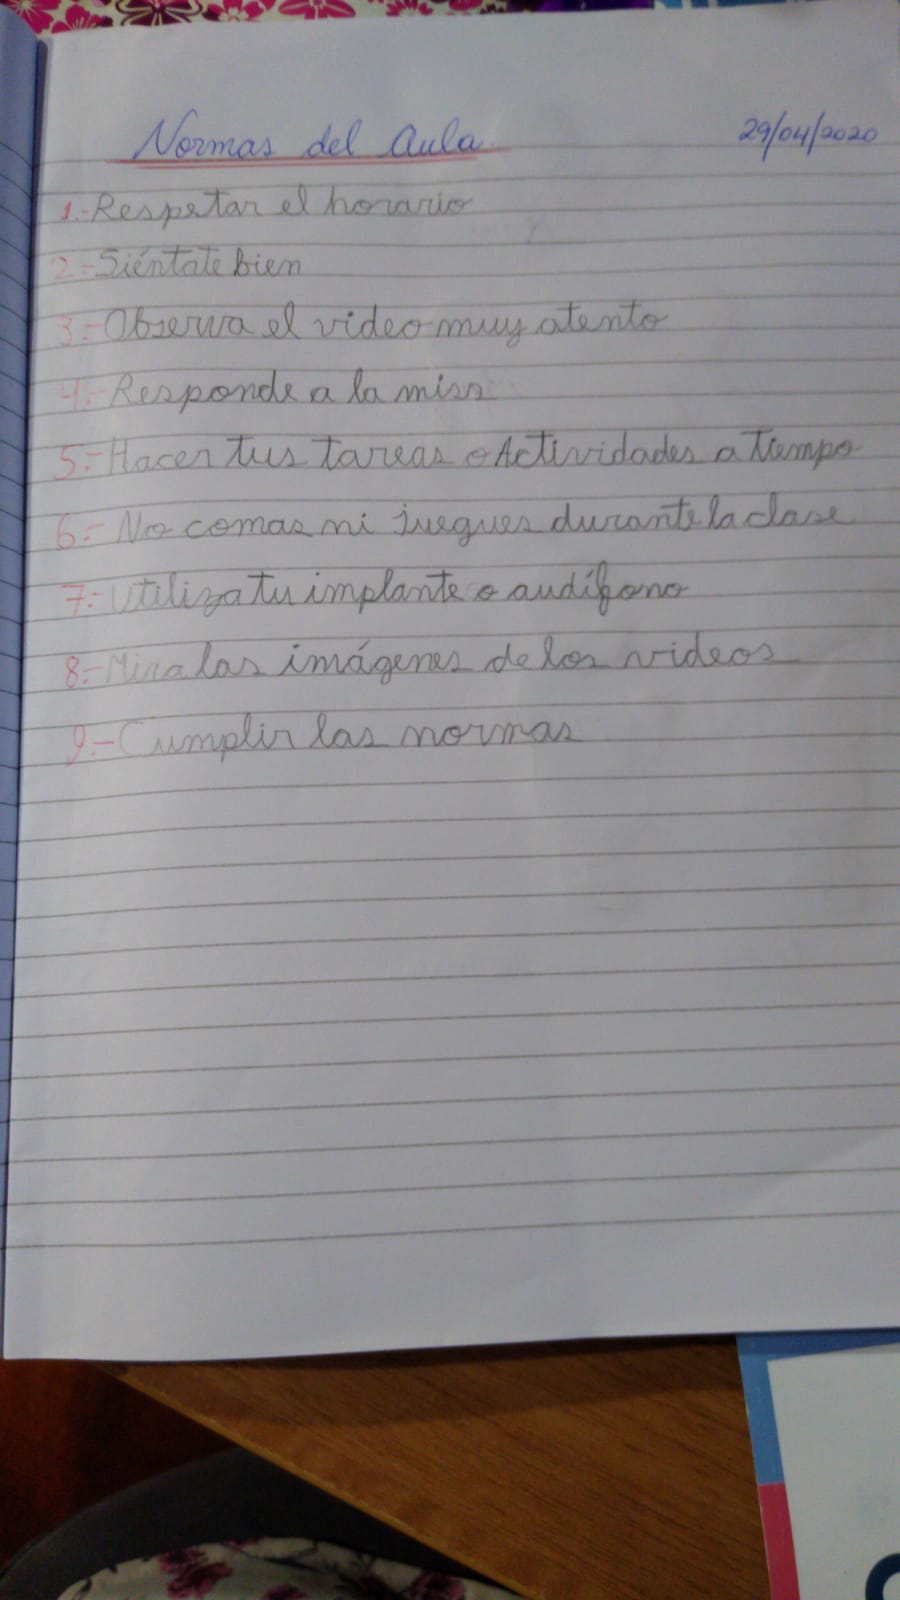 Normas del Aula 29/04/2020
1.- Respetar el horario
2.- Siéntate bien
3.- Observa el video muy atento
4.- Responde a la miss
5.- Hacer tus tareas o Actividades a tiempo
6.- No comas ni juegues durante la clase
7.- Utiliza tu implante o audífono
8.- Mira las imágenes de los videos
9.- Cumplir las normas